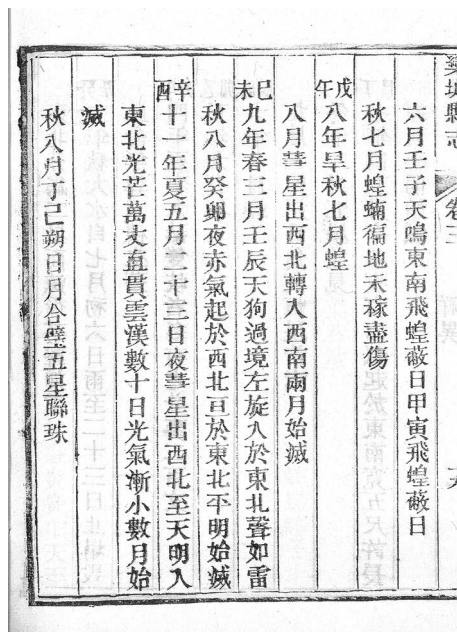 欒城縣志
卷三
六月壬子天鳴東南飛蝗蔽日甲寅飛蝗蔽日
秋七月蝗蝻徧地禾稼盡傷
戊午
八年旱秋七月蝗
八月彗星出西北轉入西南兩月始滅
己未
九年春三月壬辰天狗過境左旋入於東北聲如雷
秋八月癸卯夜赤氣起於西北亘於東北平明始滅
辛酉
十一年夏五月二十三日夜彗星出西北至天明入
東北光芒萬丈直貫雲漢數十日光氣漸小數月始
滅
秋八月丁巳朔日月合璧五星聯珠